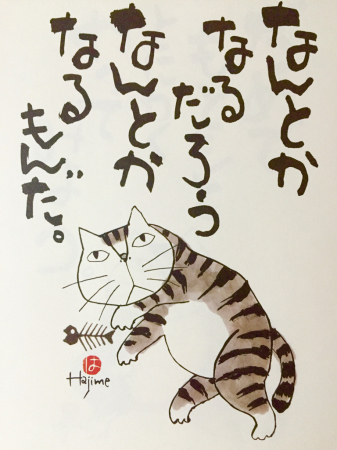 なんとか
なるだろう
なんとか
なる
もんだ。
は
Hajime